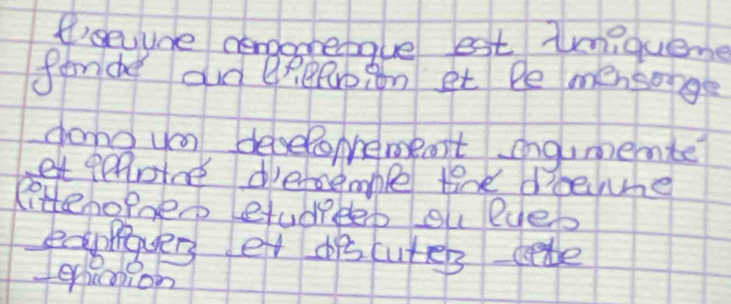 l'oeuvre romanesque est uniqueme
fondé sur l'illusion et le mensonge
dans un developpement argumenté
et illustré d'exemple tiré d'oeuvre
littéraires etudiées ou lues
expliquez et discutez cette
opinion